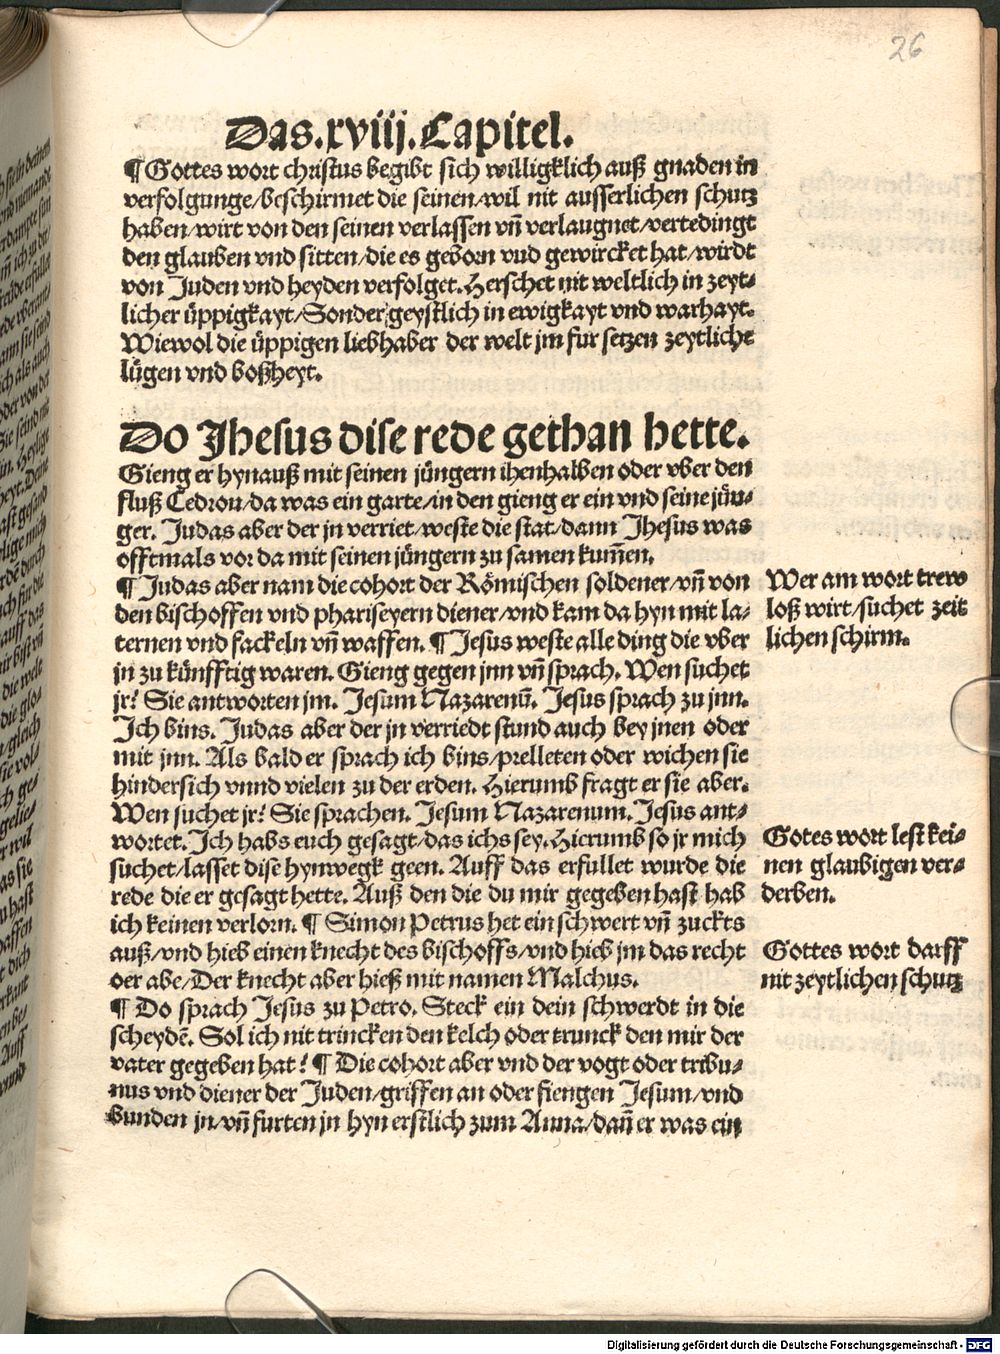 26
Das .xviij. Capitel.
¶ Gottes wort christus begibt sich willigklich auß gnaden in
verfolgunge/beschirmet die seinen/wil nit ausserlichen schutz
haben/wirt von den seinen verlassen vn̄ verlaugnet/vertedingt
den glauben vnd sitten/die es geborn vnd gewircket hat/wirdt
von Juden vnd heyden verfolget. Herschet nit weltlich in zeyt⸗
licher üppigkayt/Sonder geystlich in ewigkayt vnd warhayt.
Wiewol die üppigen liebhaber der welt jm fur setzen zeytliche
lügen vnd boßheyt.
Do Jhesus dise rede gethan hette.
Gieng er hynauß mit seinen jüngern ihenhalben oder vber den
fluß Cedron/da was ein garte/in den gieng er ein vnd seine jün⸗
ger. Judas aber der jn verriet/weste die stat/dann Jhesus was
offtmals vor da mit seinen jüngern zu samen kum̄en.
¶ Judas aber nam die cohort der Römischen soldener/vn̄ von
den bischoffen vnd phariseyern diener/vnd kam da hyn mit la⸗
ternen vnd fackeln vn̄ waffen. ¶ Jesus weste alle ding die vber
jn zu künfftig waren. Gieng gegen jnn vn̄ sprach. Wen suchet
jr? Sie antworten jm. Jesum Nazarenū. Jesus sprach zu jnn.
Ich bins. Judas aber der jn verriedt stund auch bey jnen oder
mit jnn. Als bald er sprach ich bins/prelleten oder wichen sie
hindersich vnnd vielen zu der erden. Hierumb fragt er sie aber.
Wen suchet jr? Sie sprachen. Jesum Nazarenum. Jesus ant⸗
wortet. Ich habs euch gesagt/das ichs sey. Hierumb so jr mich
suchet/lasset dise hynwegk geen. Auff das erfullet wurde die
rede die er gesagt hette. Auß den die du mir gegeben hast hab
ich keinen verlorn. ¶ Simon Petrus het ein schwert vn̄ zuckts
auß/vnd hieb einen knecht des bischoffs/vnd hieb jm das recht
oer abe/Der knecht aber hieß mit namen Malchus.
¶ Do sprach Jesus zu Petro. Steck ein dein schwerdt in die
scheydē. Sol ich nit trincken den kelch oder trunck den mir der
vater gegeben hat? ¶ Die cohort aber vnd der vogt oder tribu⸗
nus vnd diener der Juden/griffen an oder fiengen Jesum/vnd
bunden jn/vn̄ furten jn hyn erstlich zum Anna/dan̄ er was ein
Wer am wort trew
loß wirt/suchet zeit
lichen schirm.
Gotes wort lest kei⸗
nen glaubigen ver⸗
derben.
Gottes wort darff
nit zeytlichen schutz
Digitalisierung gefördert durch die Deutsche Forschungsgemeinschaft - DFG